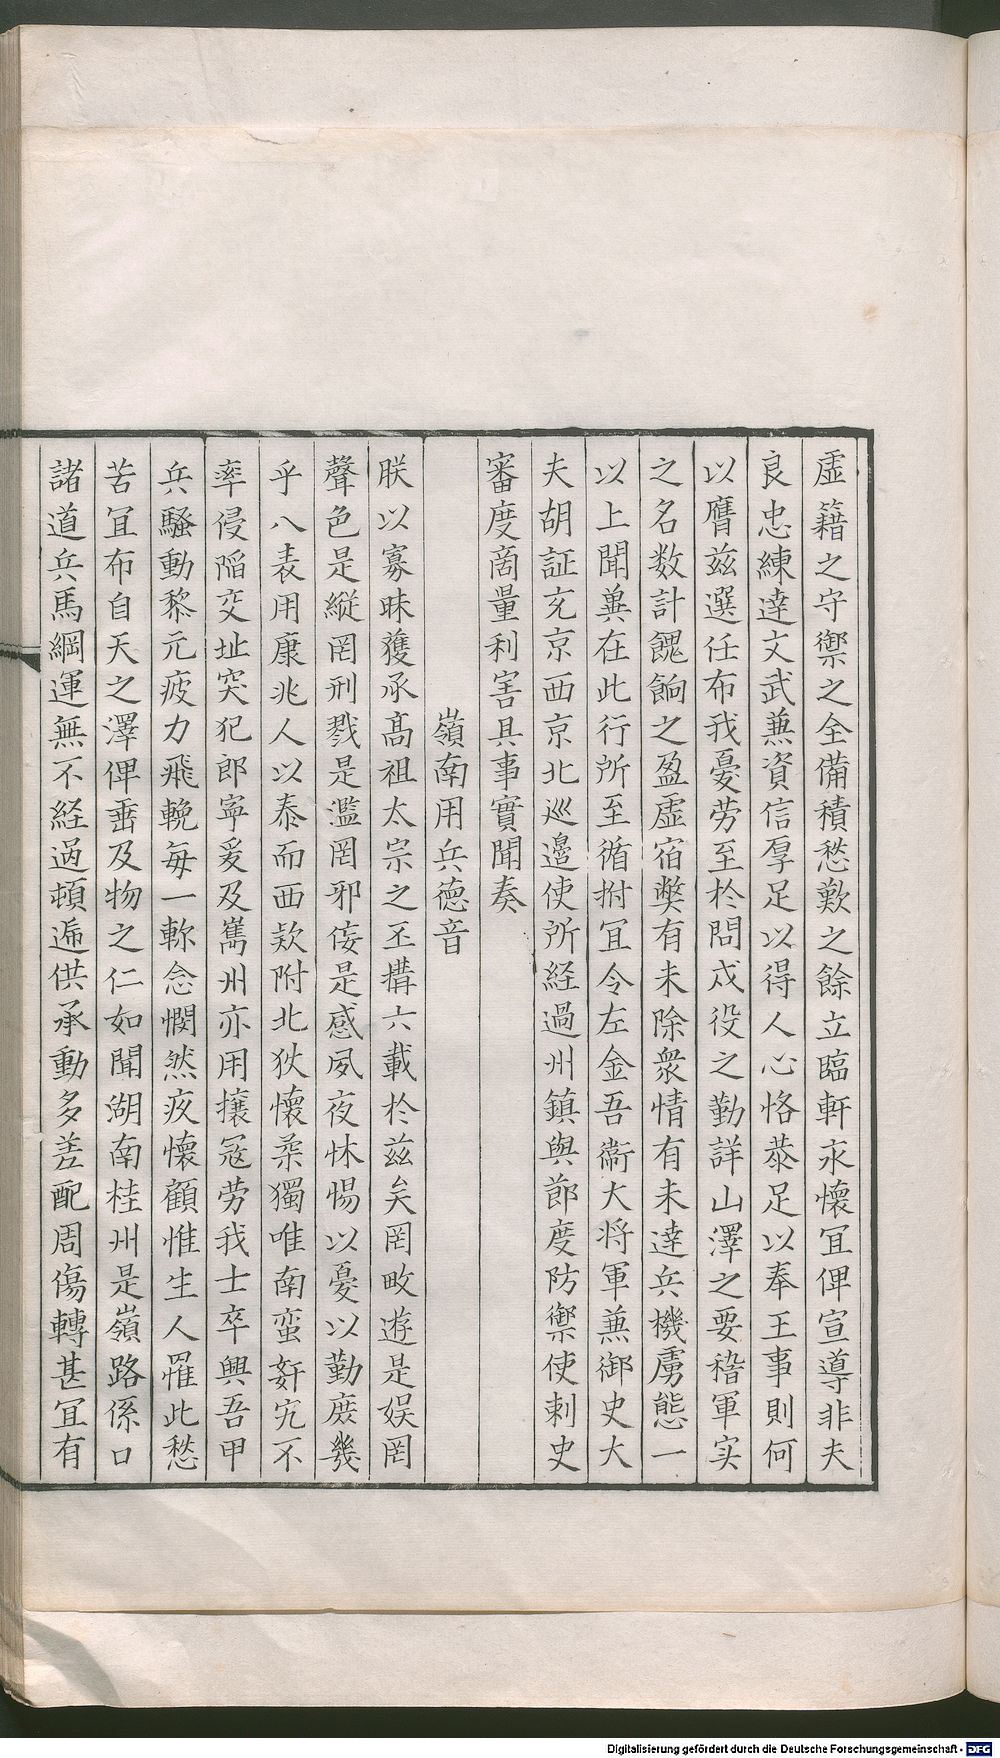 虛籍之守禦之全備積愁歎之餘立臨軒永懷冝俾宣導非夫
良忠練達文武兼資信厚足以得人心恪恭足以奉王事則何
以膺茲選任布我憂劳至於問戍役之勤詳山澤之要稽軍实
之名数計餽餉之盈虛宿弊有未除衆情有未達兵機虜態一
以上聞兾在此行所至循拊冝令左金吾衞大将軍兼御史大
夫胡証充京西京北巡邉使所経過州鎮與節度防禦使刺史
審度啇量利害具事實聞奏
嶺南用兵德音
朕以寡昧獲承髙祖太宗之丕搆六載於兹矣罔畋遊是娱罔
聲色是縦罔刑戮是濫罔邪侫是惑夙夜怵惕以憂以勤庶幾
乎八表用康兆人以泰而西欵附北狄懷柔獨唯南蛮姧宄不
率侵陷交址突犯郎寧爰及嶲州亦用攘冦劳我士卒興吾甲
兵騷動黎元疲力飛輓毎一軫念憫然疚懷顧惟生人罹此愁
苦冝布自天之澤俾垂及物之仁如聞湖南桂州是嶺路係口
諸道兵馬綱運無不経過頓遞供承動多差配周傷轉甚冝有
Digitalisierung gefördert durch die Deutsche Forschungsgemeinschaft - DFG